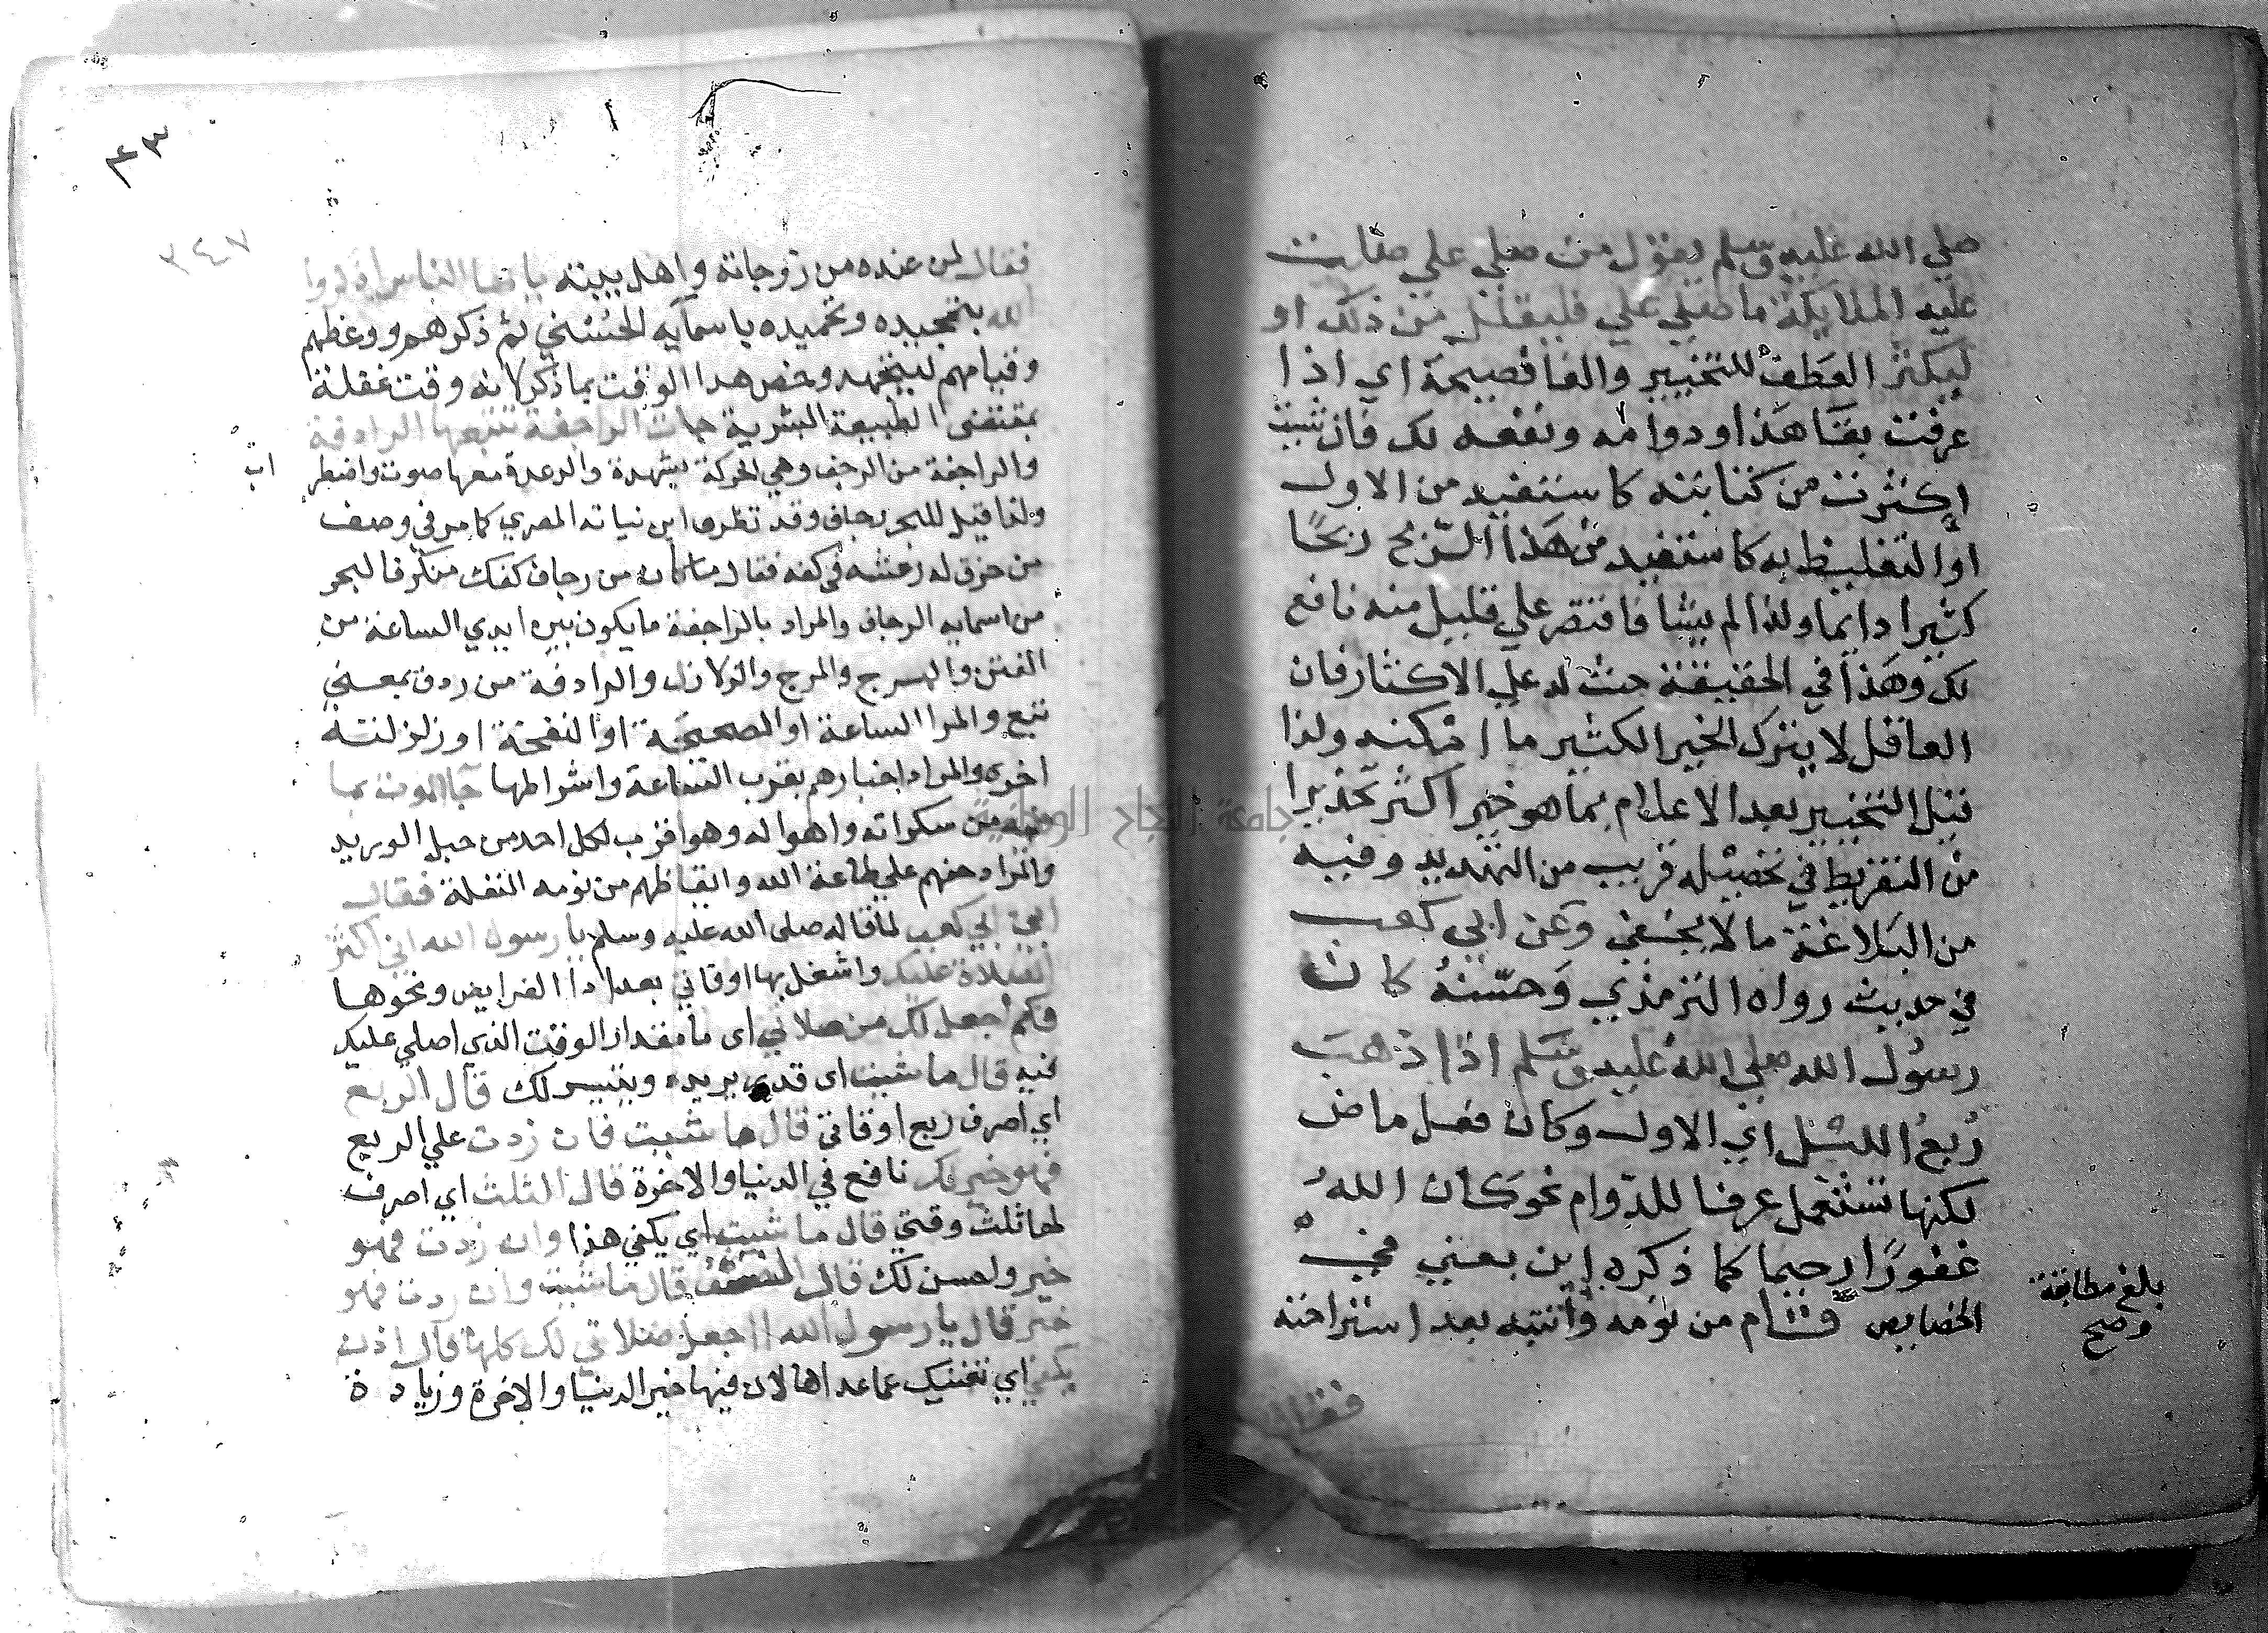 صلي الله عليه وسلم يقول من صلي علي صلت
عليه الملايكة ما صلي علي فليقلل من ذلك او
ليكثر العطف للتخيير والفا فصيحة اي اذا
عرفت بقا هذا ودوامه ونفعه لك فان شيت
اكثرت من كتابته كا ستفيد من الاول
او التغليظ به كا ستفيد من هذا الربح ربحا
كثيرا دايما ولذا لم يشا فاقتصر علي قليل منه نافع
لك وهذا في الحقيقة حث له علي الاكثار فان
العاقل لا يترك الخير الكثير ما امكنه ولذا
قيل التخيير بعد الاعلام بما هو خير اكثر تحذيرا
من التفريط في تحصيله قريب من التهديد وفيه
من البلاغة ما لا يخفي وعن ابي كعب
في حديث رواه الترمذي وحسنه كان
رسول الله صلي الله عليه وسلم اذا ذهب
ربع الليل اي الاول وكان فعل ماض
لكنها تستعمل عرفا للدوام نحو كان الله
غفورا رحيما كما ذكره ابن يعني في
الخصايص قام من نومه وانتبه بعد استراحته
بلغ مطابقة
وصح
فقال
٤٣
٣٤٧
فقال لمن عنده من زوجاته واهل بيته يا ايها الناس اذكروا
الله بتمجيده وتحميده باسمآيه الحسني ثم ذكرهم ووعظهم
وقيامهم للتهجد وخص هذا الوقت بما ذكر لانه وقت غفلة
بمقتضى الطبيعة البشرية جات الراجفة تتبعها الرادفة
والراجفة من الرجف وهي الحركة بشهدة والرعدة معها صوت واضطر
اب
ولذا قيل للبحر رجاف وقد تظرف ابن نباته المصري كما مر في وصف
من حزق له رعشه في كفه فقال ما كان من رجاف كفك منكر فالبحر
من اسمايه الرجاف والمراد بالراجفة ما يكون بين ايدي الساعة من
الفتن والهرج والمرج والزلازل والرادفة من ردف بمعني
تبع والمرا الساعة او الصحيحة او النفخة او زلزلته
اخرى والمراد اخبارهم بقرب الساعة واشراطها جآ الموت بما
فيه من سكراته واهواله وهو اقرب لكل احد من حبل الوريد
والمراد حثهم علي طاعة الله وايقاظهم من نومه الغفلة فقال
ابي ابي كعب لما قاله صلى الله عليه وسلم يا رسول الله اني اكثر
الصلاة عليك واشغل بها اوقاتي بعد ادا الفرايض ونحوها
فكم اجعل لك من صلاتي اى ما مقدار الوقت الذي اصلي عليك
فيه قال ما شيت اى قدر يريده ويتيسر لك قال الربع
اي اصرف ربع اوقاتي قال ما شيت فان زدت علي الربع
فهو خير لك نافع في الدنيا والاخرة قال الثلث اي اصرف
لها ثلث وقتي قال ما شيت اي يكفي هذا وان زدت فهو
خير ولحسن لك قال النصف قال ما شيت وان زدت فهو
خير قال يا رسول الله اجعل صلاتي لك كلها قال اذن
يكفي اي تغنيك عما عداها لان فيها خير الدنيا والاخرة وزيادة
جامعة النجاح الوطنية